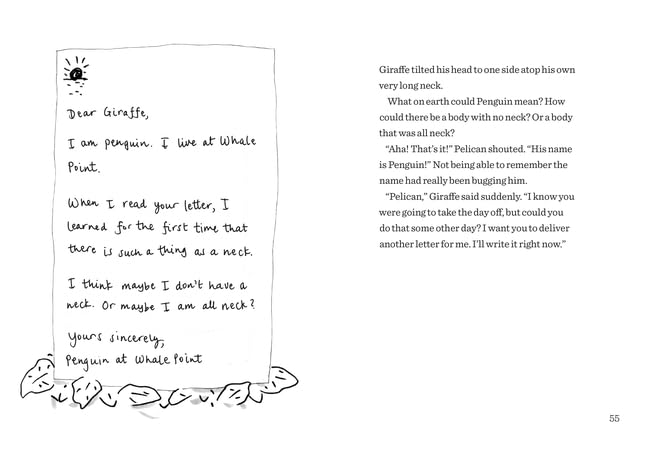 Dear Giraffe,
I am penguin. I live at Whale
Point.
When I read your letter, I
learned for the first time that
there is such a thing as a neck.
I think maybe I don't have a
neck. Or maybe I am all neck?
Yours sincerely,
Penguin at Whale Point
Giraffe tilted his head to one side atop his own
very long neck.
What on earth could Penguin mean? How
could there be a body with no neck? Or a body
that was all neck?
“Aha! That’s it!” Pelican shouted. “His name
is Penguin!” Not being able to remember the
name had really been bugging him.
“Pelican,” Giraffe said suddenly. “I know you
were going to take the day off, but could you
do that some other day? I want you to deliver
another letter for me. I’ll write it right now.”
55